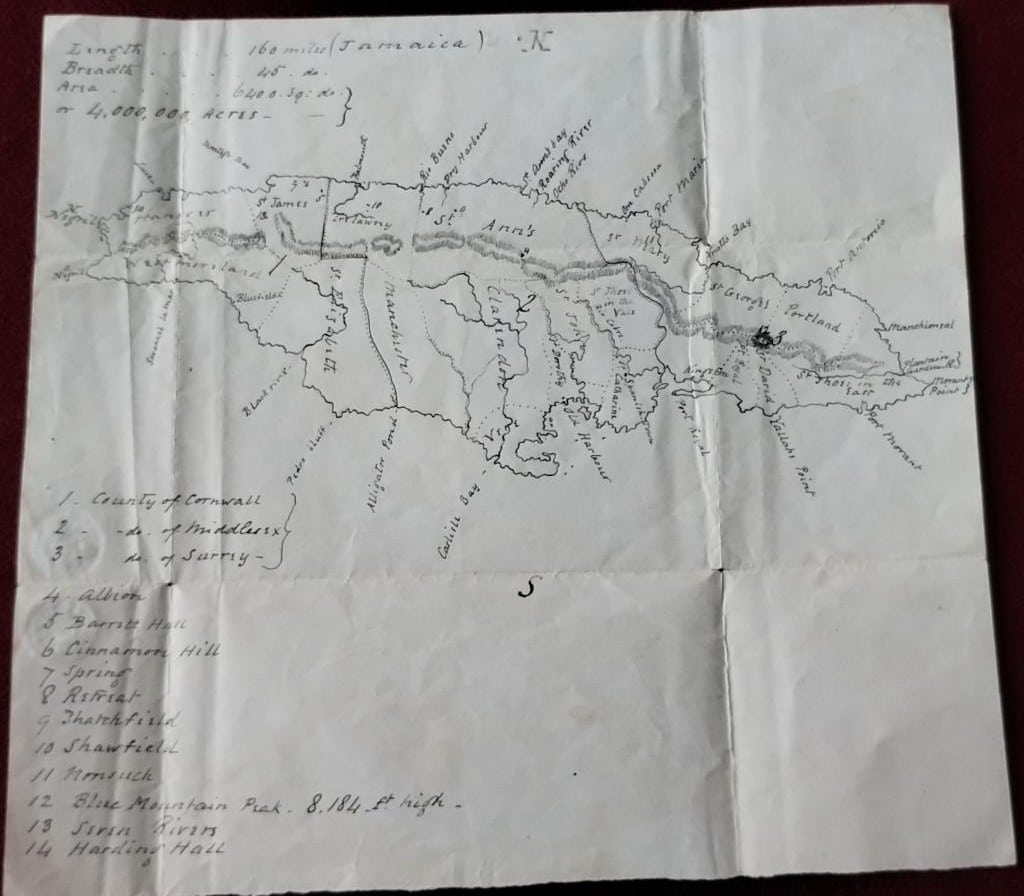 Length . . . 160 miles (Jamaica)
N
Breadth . . . 45 . do.
Area . . . . . 6400 Sq: do.
or 4,000,000, Acres -
Rio Bueno
Dry Harbour
St Anns bay
Roaring River
Ocho Rios
Port Maria
Negril
Hanover
St James
Trelawny
St Ann's
St Mary
Port Antonio
Westmorland
Negril
Bluefields
St Elizabeth
Manchester
Clarendon
St Johns
St Thos
in the
Vale
St Georges
Portland
Manchioneal
Plantain
Garden R.
Morant
Point
St Dorothy
St Catharine
St David
St Thos. in the
East
Savanna lamar
Black river
Pedro bluff
Alligator Pond
Carlisle Bay
Old Harbour
Port Royal
Yallahs Point
Port Morant
1 - County of Cornwall
2 - - do. of Middlesex
3 - do. of Surrey -
S
4 Albion
5 Barrett Hall
6 Cinnamon Hill
7 Spring
8 Retreat
9 Thatchfield
10 Shawfield
11 Nonsuch
12 Blue Mountain Peak - 8.184 ft high -
13 Seven Rivers
14 Harding Hall